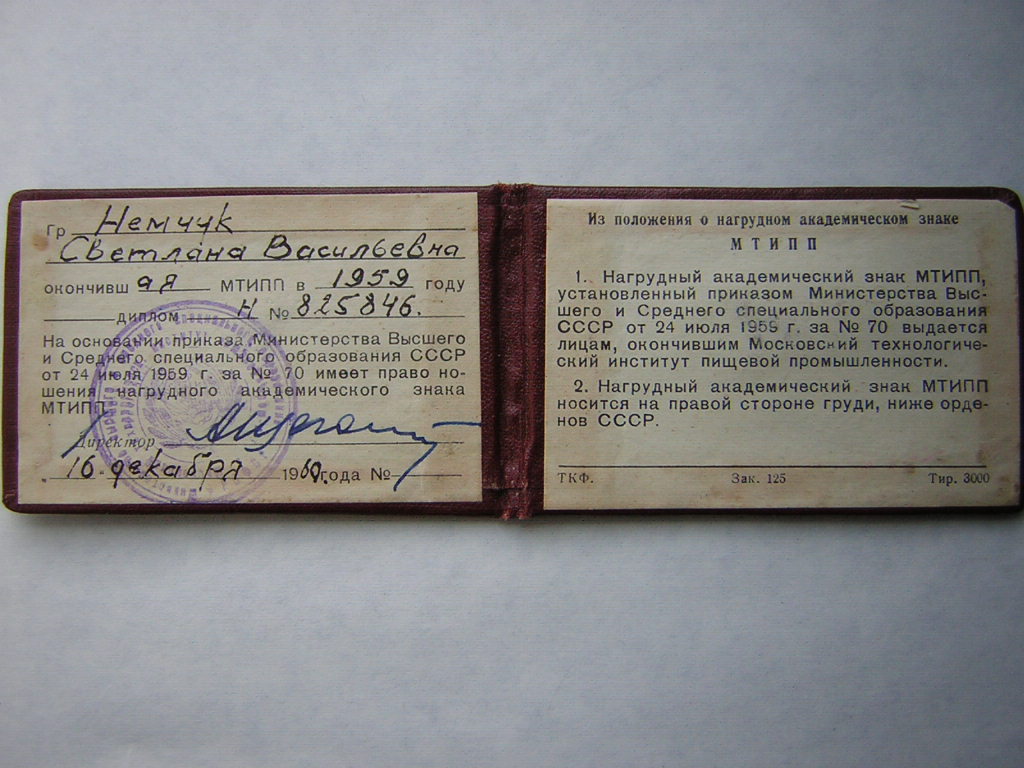 Гр Немчук
Светлана Васильевна
окончивш ая МТИПП в 1959 году
диплом Н № 825846.
На основании приказа Министерства Высшего
и Среднего специального образования СССР
от 24 июля 1959 г. за № 70 имеет право но-
шения нагрудного академического знака
МТИПП.
Директор
16 декабря 1960 года №
Из положения о нагрудном академическом знаке
МТИПП
1. Нагрудный академический знак МТИПП,
установленный приказом Министерства Выс-
шего и Среднего специального образования
СССР от 24 июля 1959 г. за № 70 выдается
лицам, окончившим Московский технологиче-
ский институт пищевой промышленности.
2. Нагрудный академический знак МТИПП
носится на правой стороне груди, ниже орде-
нов СССР.
ТКФ. Зак. 125 Тир. 3000